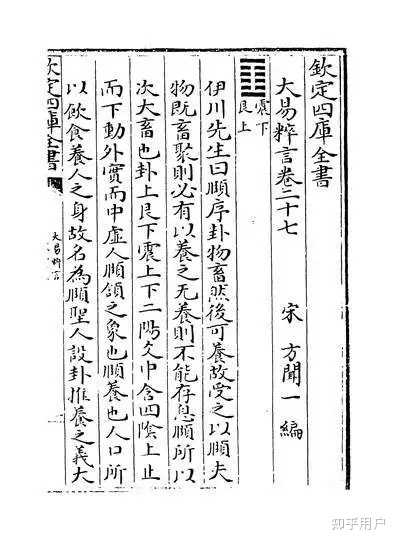 欽定四庫全書
大易粹言卷二十七
宋 方聞一 編
震下
艮上
伊川先生曰頤序卦物畜然後可養故受之以頤夫
物既畜聚則必有以養之无養則不能存息頤所以
次大畜也卦上艮下震上下二陽爻中含四陰上止
而下動外實而中虚人頤頷之象也頤養也人口所
以飲食養人之身故名為頤聖人設卦推養之義大
欽定四庫全書
大易粹言
知乎用户